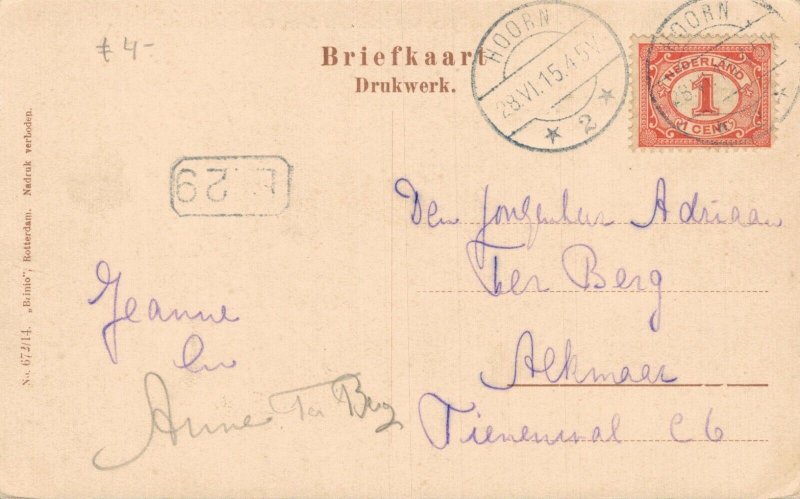 ƒ 4-
Briefkaart
Drukwerk.
HOORN
28.VI.15.4-5V
2
HOORN
NEDERLAND
1
1 CENT
29
Den Jongenheer Adriaan
Ter Berg
Alkmaar
C 6
Jeanne
en
Anne Ter Berg
No. 672/14. „Brinio”, Rotterdam. Nadruk verboden.